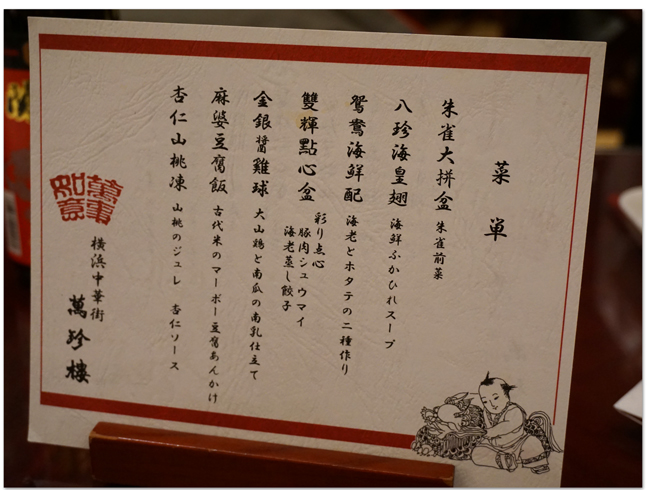 菜単
朱雀大拼盆 朱雀前菜
八珍海皇翅 海鮮ふかひれスープ
鴛鴦海鮮配 海老とホタテの二種作り
雙輝點心盒 彩り点心
豚肉シュウマイ
海老蒸し餃子
金銀醬雞球 大山鶏と南瓜の南乳仕立て
麻婆豆腐飯 古代米のマーボー豆腐あんかけ
杏仁山桃凍 山桃のジュレ 杏仁ソース
横浜中華街
萬珍樓
萬事如意